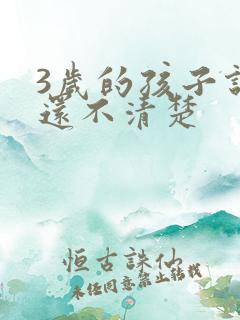 3歲的孩子說
還不清楚
恒古誅仙
未经同意禁止转载